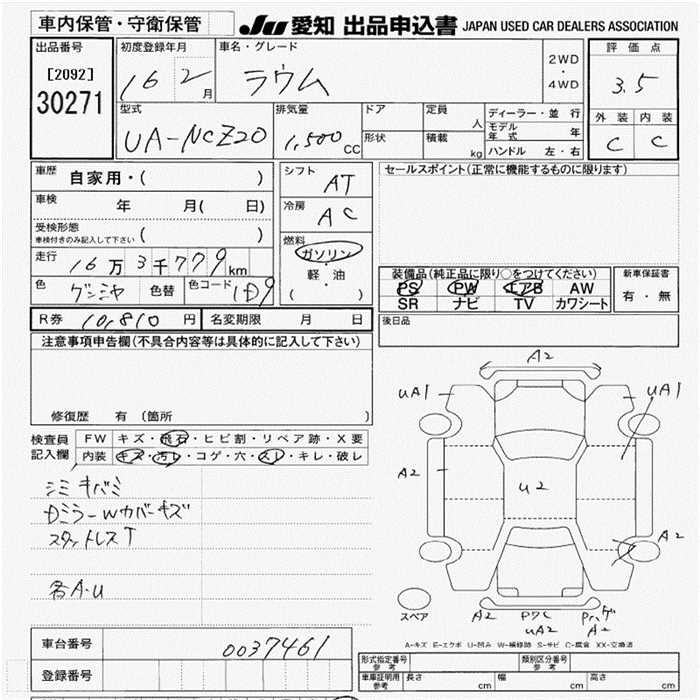 車内保管・守衛保管
JU 愛知 出品申込書 JAPAN USED CAR DEALERS ASSOCIATION
出品番号
[2092]
30271
初度登録年月
16 2月
車名・グレード
ラウム
2WD
・
4WD
評価点
3.5
外装 内装
C C
型式
UA-NCZ20
排気量
1,500 CC
ドア
形状
定員
人
積載
kg
ディーラー・並行
モデル年式 年
ハンドル 左・右
車歴
自家用・( )
車検
年 月( 日)
受検形態
車検付きのみ記入して下さい ( )
走行
16万3千779km
色
色替
色コード
1D9
シフト
AT
冷房
AC
燃料
ガソリン
・
軽・油
( )
セールスポイント(正常に機能するものに限ります)
装備品(純正品に限り○をつけてください)
PS PW エアB AW
SR ナビ TV カワシート
新車保証書
有・無
R券 10,810 円
名変期限 月 日
後日品
注意事項申告欄(不具合内容等は具体的に記入して下さい)
修復歴 有 (箇所 )
検査員
記入欄
FW キズ・飛石・ヒビ割・リペア跡・X要
内装 キズ・汚レ・コゲ・穴・スレ・キレ・破レ
シミ キバミ
DミラーWカバーキズ
スタットレスT
各A・U
A2
UA1
UA1
A2
U2
A2
スペア
A2
UA2
A-キズ E-エクボ U-凹み W-補修跡 S-サビ C-腐食 XX-交換済
車台番号
0037461
登録番号
形式指定番号
参考
類別区分番号
参考
車庫証明用
参考
長さ cm
幅 cm
高さ cm